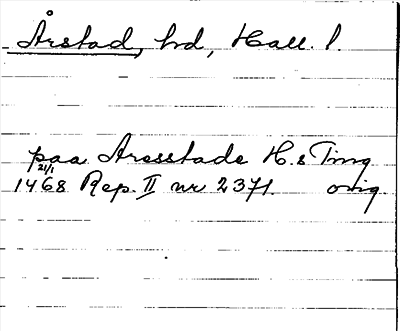 Årstad, hd, Hall. l.
paa Aresstade H.s Ting
21/1
1468 Rep. II nr 2371. orig